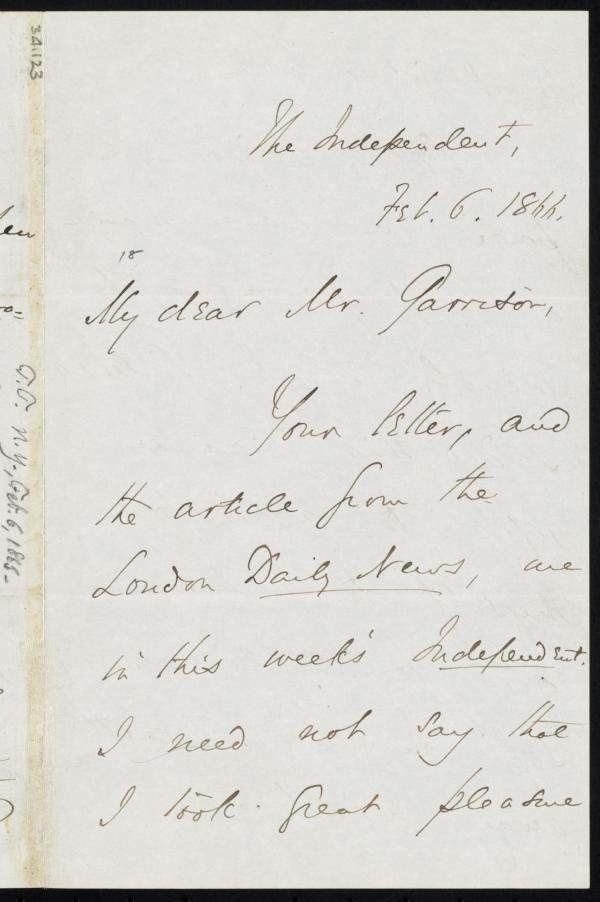 The Independent,
Feb. 6. 1866.
18
My dear Mr. Garrison,
Your letter, and
the article from the
London Daily News, are
in this week's Independent.
I need not say that
I took great pleasure
N.Y., Feb. 6, 1865.